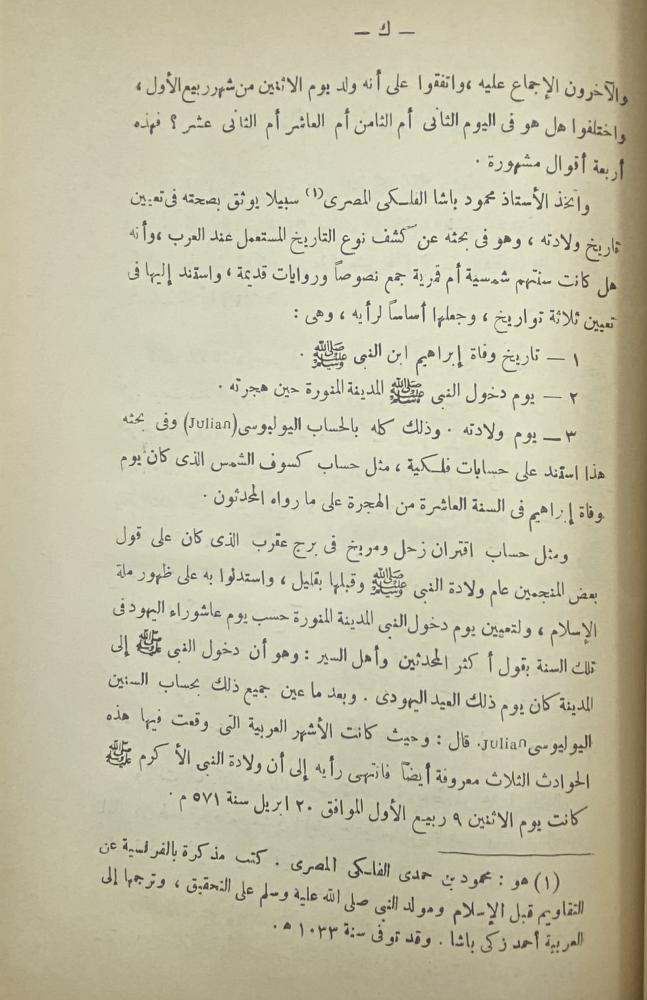 — ك —
والآخرون الإجماع عليه ،واتفقوا على أنه ولد يوم الاثنين من شهر ربيع الأول ،
واختلفوا هل هو فى اليوم الثانى أم الثامن أم العاشر أم الثانى عشر ؟ فهذه
أربعة أقوال مشهورة .
واتخذ الأستاذ محمود باشا الفلكى المصرى(١) سبيلا يوثق بصحته فى تعيين
تاريخ ولادته ، وهو فى بحثه عن كشف نوع التاريخ المستعمل عند العرب ،وأنه
هل كانت سنتهم شمسية أم قمرية جمع نصوصاً وروايات قديمة ، واستند إليها فى
تعيين ثلاثة تواريخ ، وجعلها أساساً لرأيه ، وهى :
١ — تاريخ وفاة إبراهيم ابن النبى ﷺ .
٢ — يوم دخول النبى ﷺ المدينة المنورة حين هجرته .
٣ — يوم ولادته . وذلك كله بالحساب اليوليوسى (Julian) وفى بحثه
هذا استند على حسابات فلكية ، مثل حساب كسوف الشمس الذى كان يوم
وفاة إبراهيم فى السنة العاشرة من الهجرة على ما رواه المحدثون .
ومثل حساب اقتران زحل ومريخ فى برج عقرب الذى كان على قول
بعض المنجمين عام ولادة النبى ﷺ وقبلها بقليل ، واستدلوا به على ظهور ملة
الإسلام ، ولتعيين يوم دخول النبى المدينة المنورة حسب يوم عاشوراء اليهود فى
تلك السنة بقول أكثر المحدثين وأهل السير : وهو أن دخول النبى ﷺ إلى
المدينة كان يوم ذلك العيد اليهودى . وبعد ما عين جميع ذلك بحساب السنين
اليوليوسى Julian. قال : وحيث كانت الأشهر العربية التى وقعت فيها هذه
الحوادث الثلاث معروفة أيضاً فانتهى رأيه إلى أن ولادة النبى الأكرم ﷺ
كانت يوم الاثنين ٩ ربيع الأول الموافق ٢٠ ابريل سنة ٥٧١ م .
(١) هو : محمود بن حمدى الفلكى المصرى . كتب مذكرة بالفرنسية عن
التقاويم قبل الإسلام ومولد النبى صلى الله علية وسلم على التحقيق ، وترجمها إلى
العربية أحمد زكى باشا . وقد توفى سنة ١٠٣٣ ه .